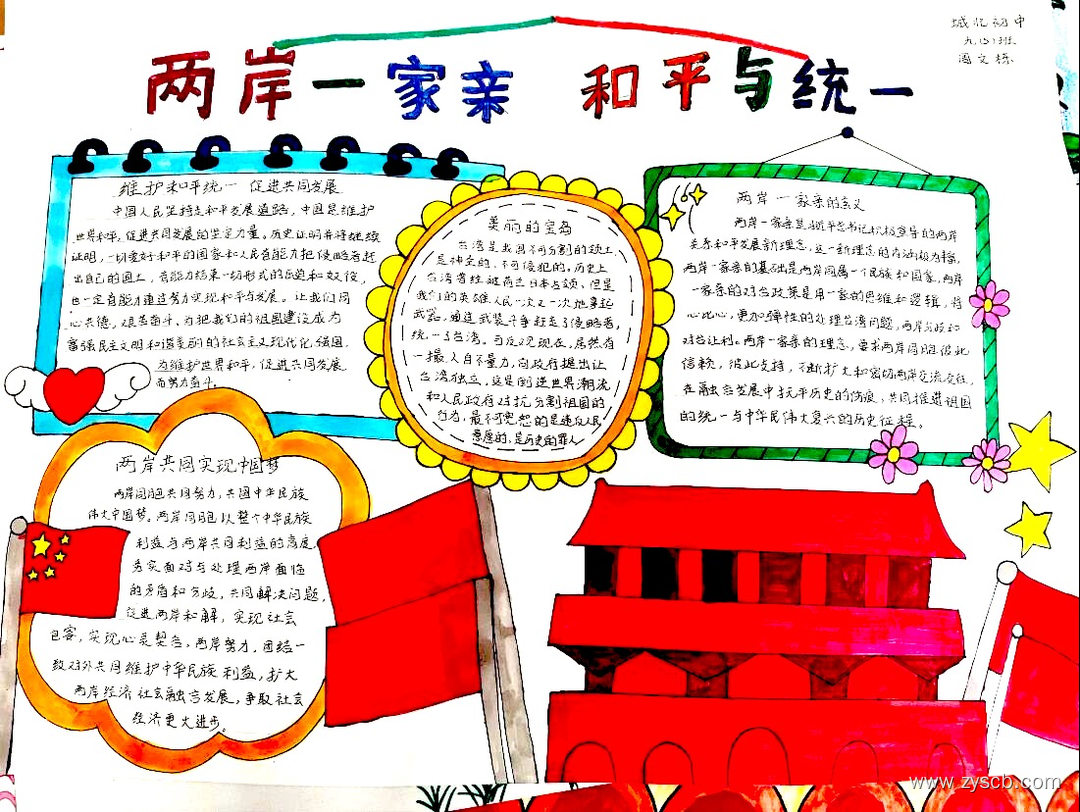 城北初中
九(5)班
两岸一家亲 和平与统一
维护和平统一 促进共同发展
中国人民坚持走和平发展道路，中国是维护
世界和平，促进共同发展的坚定力量，历史证明并将继续
证明，一切爱好和平的国家和人民有能力把侵略者赶
出自己的国土，有能力结束一切形式的压迫和奴役，
也一定有能力通过努力实现和平与发展。让我们同
心共德，艰苦奋斗，为把我们的祖国建设成为
富强民主文明和谐美丽的社会主义现代化强国，
为维护世界和平，促进共同发展
而努力奋斗。
美丽的宝岛
台湾是我国不可分割的领土
是神圣的、不可侵犯的，历史上
台湾曾经被荷兰日本占领，但是
我们的英雄人民一次又一次地拿起
武器，通过武装斗争赶走了侵略者，
统一了台湾。可反观现在，居然有
一撮人自不量力，向政府提出让
台湾独立，这是倒逆世界潮流
和人民政府对抗分割祖国的
行为，最不可宽恕的是违反人民
意愿的，是历史的罪人
两岸一家亲的含义
两岸一家亲是习近平总书记积极倡导的两岸
关系和平发展新理念，这一新理念的内涵极为丰富，
两岸一家亲的基础是两岸同属一个民族和国家，两岸
一家亲的对台政策是用一家的思维和逻辑，将
心比心，更加弹性的处理台湾问题，两岸分歧和
对台让利。两岸一家亲的理念，要求两岸同胞彼此
信赖，彼此支持，不断扩大和密切两岸交流交往，
在融合发展中抚平历史的伤痕，共同推进祖国
的统一与中华民伟大复兴的历史征程。
两岸共同实现中国梦
两岸同胞共同努力，共圆中华民族
伟大中国梦。两岸同胞以整个中华民族
利益与两岸共同利益的高度，
务实面对与处理两岸面临
的矛盾和分歧，共同解决问题，
促进两岸和解，实现社会
包容，实现心灵契合，两岸努力，团结一
致对外共同维护中华民族利益，扩大
两岸经济社会融合发展，争取社会
经济更大进步。
www.zyscb.com